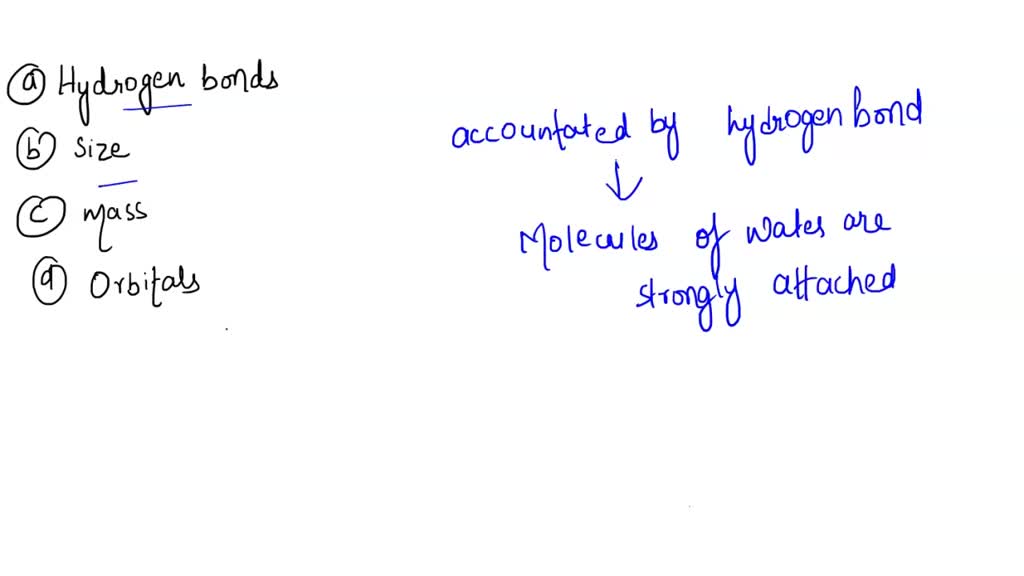 a Hydrogen bonds
b Size
c mass
d Orbitals
accountated by hydrogen bond
Molecules of wates are
strongly attached